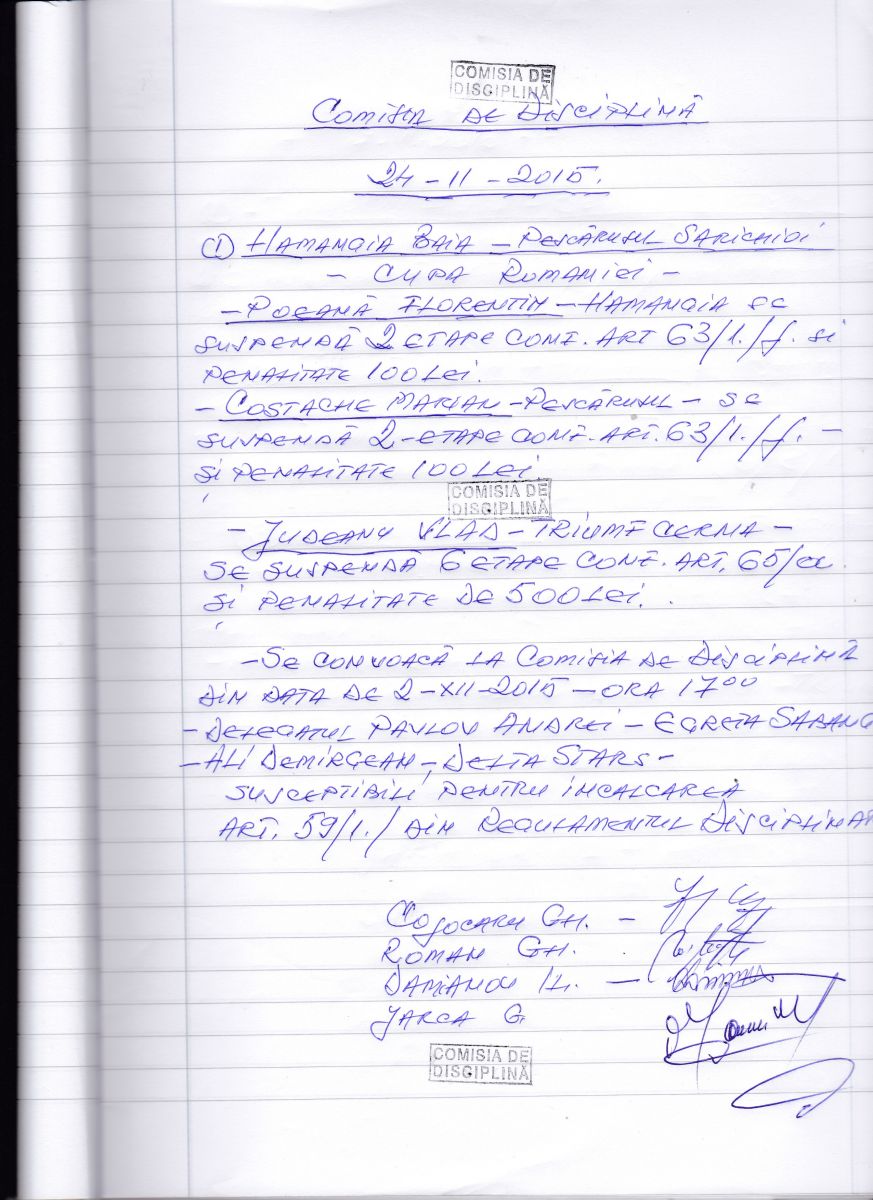 COMISIA DE
DISCIPLINĂ
COMISIA DE DISCIPLINĂ
24-11-2015.
① HAMANGIA BAIA - PESCĂRUȘUL SARICHIOI
- CUPA ROMANIEI -
- POEANĂ FLORENTIN - HAMANGIA SE
SUSPENDĂ 2 ETAPE CONF. ART 63/1./f. si
PENALITATE 100 LEI.
- COSTACHE MARIAN - PESCĂRUSUL - SE
SUSPENDĂ 2 - ETAPE CONF. ART. 63/1./f. -
ȘI PENALITATE 100 LEI
COMISIA DE
DISCIPLINĂ
- JUDEANU VLAD - TRIUMF CERNA -
SE SUSPENDĂ 6 ETAPE CONF. ART. 65/a.
ȘI PENALITATE DE 500 LEI.
- SE CONVOACĂ LA COMISIA DE DISCIPLINĂ
DIN DATA DE 2-XII-2015 - ORA 17⁰⁰
- DELEGATUL PAVLOV ANDREI - EGRETA SABANG
- ALI DEMIRGEAN, DELTA STARS -
SUSCEPTIBILI PENTRU INCALCAREA
ART. 59/1./ DIN REGULAMENTUL DISCIPLINAR
COJOCARU GH. -
ROMAN GH.
DAMIANOV IL. -
JARCA G
COMISIA DE
DISCIPLINĂ